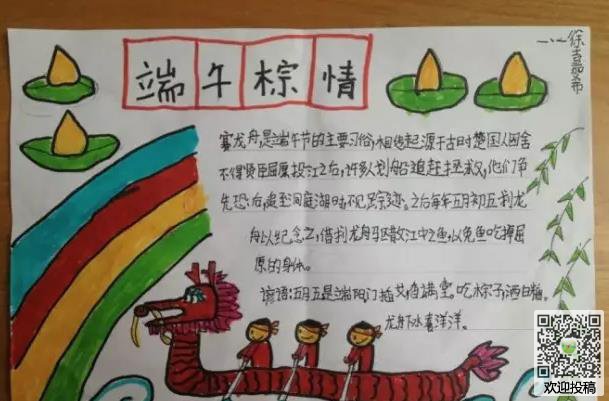 端午棕情
一.一 徐嘉希
赛龙舟,是端午节的主要习俗,相传起源于古时楚国人因舍
不得贤臣屈原投江之后,许多人划船追赶拯救,他们争
先恐后,追至洞庭湖时不见踪迹。之后每年五月初五划龙
舟以纪念之,借划龙舟驱散江中之鱼,以免鱼吃掉屈
原的身体。
谚语:五月五是端阳门插艾,香满堂。吃粽子,洒白糖。
龙舟下水喜洋洋。
欢迎投稿